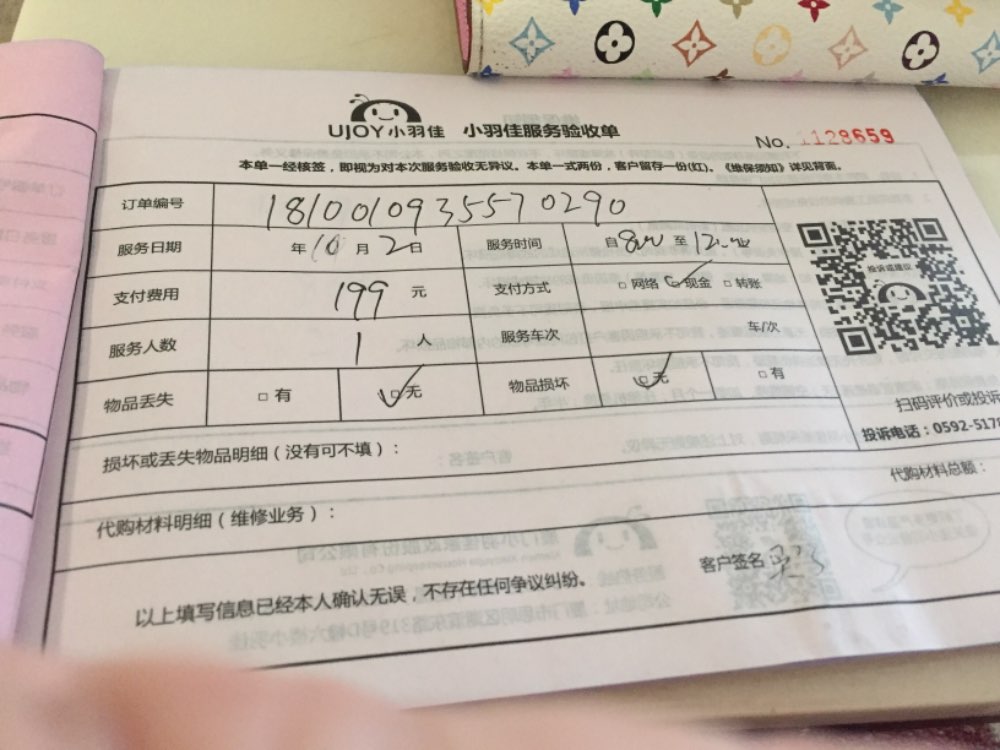 UJOY小羽佳 小羽佳服务验收单
No. 1128659
本单一经核签，即视为对本次服务验收无异议。本单一式两份，客户留存一份(红)。《维保须知》详见背面。
订单编号 1810010935570290
服务日期 年10月2日 服务时间 自8:00至12:00
支付费用 199 元 支付方式 □网络 □现金 □转账
服务人数 1 人 服务车次 车/次
物品丢失 □有 □无 物品损坏 □无 □有
投诉或建议
扫码评价或投诉
投诉电话：0592-5178
损坏或丢失物品明细（没有可不填）：
代购材料明细（维修业务）： 代购材料总额：
以上填写信息已经本人确认无误，不存在任何争议纠纷。 客户签名